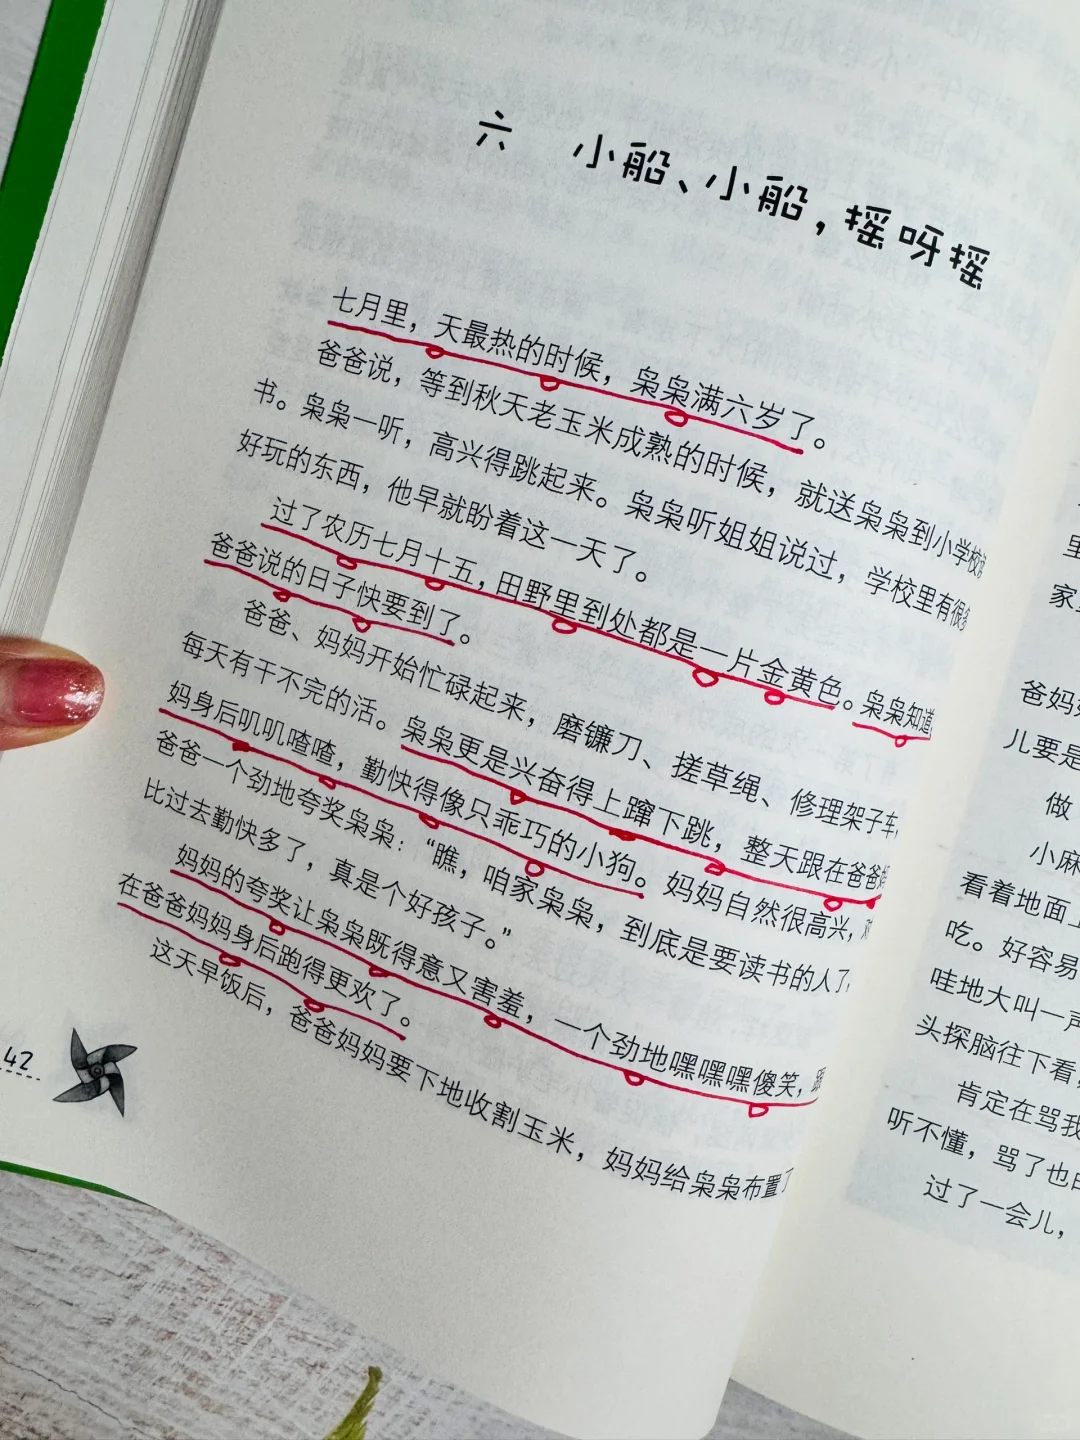 六 小船、小船，摇呀摇
七月里，天最热的时候，枭枭满六岁了。
爸爸说，等到秋天老玉米成熟的时候，就送枭枭到小学校
书。枭枭一听，高兴得跳起来。枭枭听姐姐说过，学校里有很多
好玩的东西，他早就盼着这一天了。
过了农历七月十五，田野里到处都是一片金黄色。枭枭知道，
爸爸说的日子快要到了。
爸爸、妈妈开始忙碌起来，磨镰刀、搓草绳、修理架子车，
每天有干不完的活。枭枭更是兴奋得上蹿下跳，整天跟在爸爸妈
妈身后叽叽喳喳，勤快得像只乖巧的小狗。妈妈自然很高兴，对
爸爸一个劲地夸奖枭枭：“瞧，咱家枭枭，到底是要读书的人了，
比过去勤快多了，真是个好孩子。”
妈妈的夸奖让枭枭既得意又害羞，一个劲地嘿嘿嘿傻笑，跟
在爸爸妈妈身后跑得更欢了。
这天早饭后，爸爸妈妈要下地收割玉米，妈妈给枭枭布置了
42
里
家
爸妈
儿要是
做
小麻
看着地面上
吃。好容易
哇地大叫一声
头探脑往下看，
肯定在骂我
听不懂，骂了也白
过了一会儿，